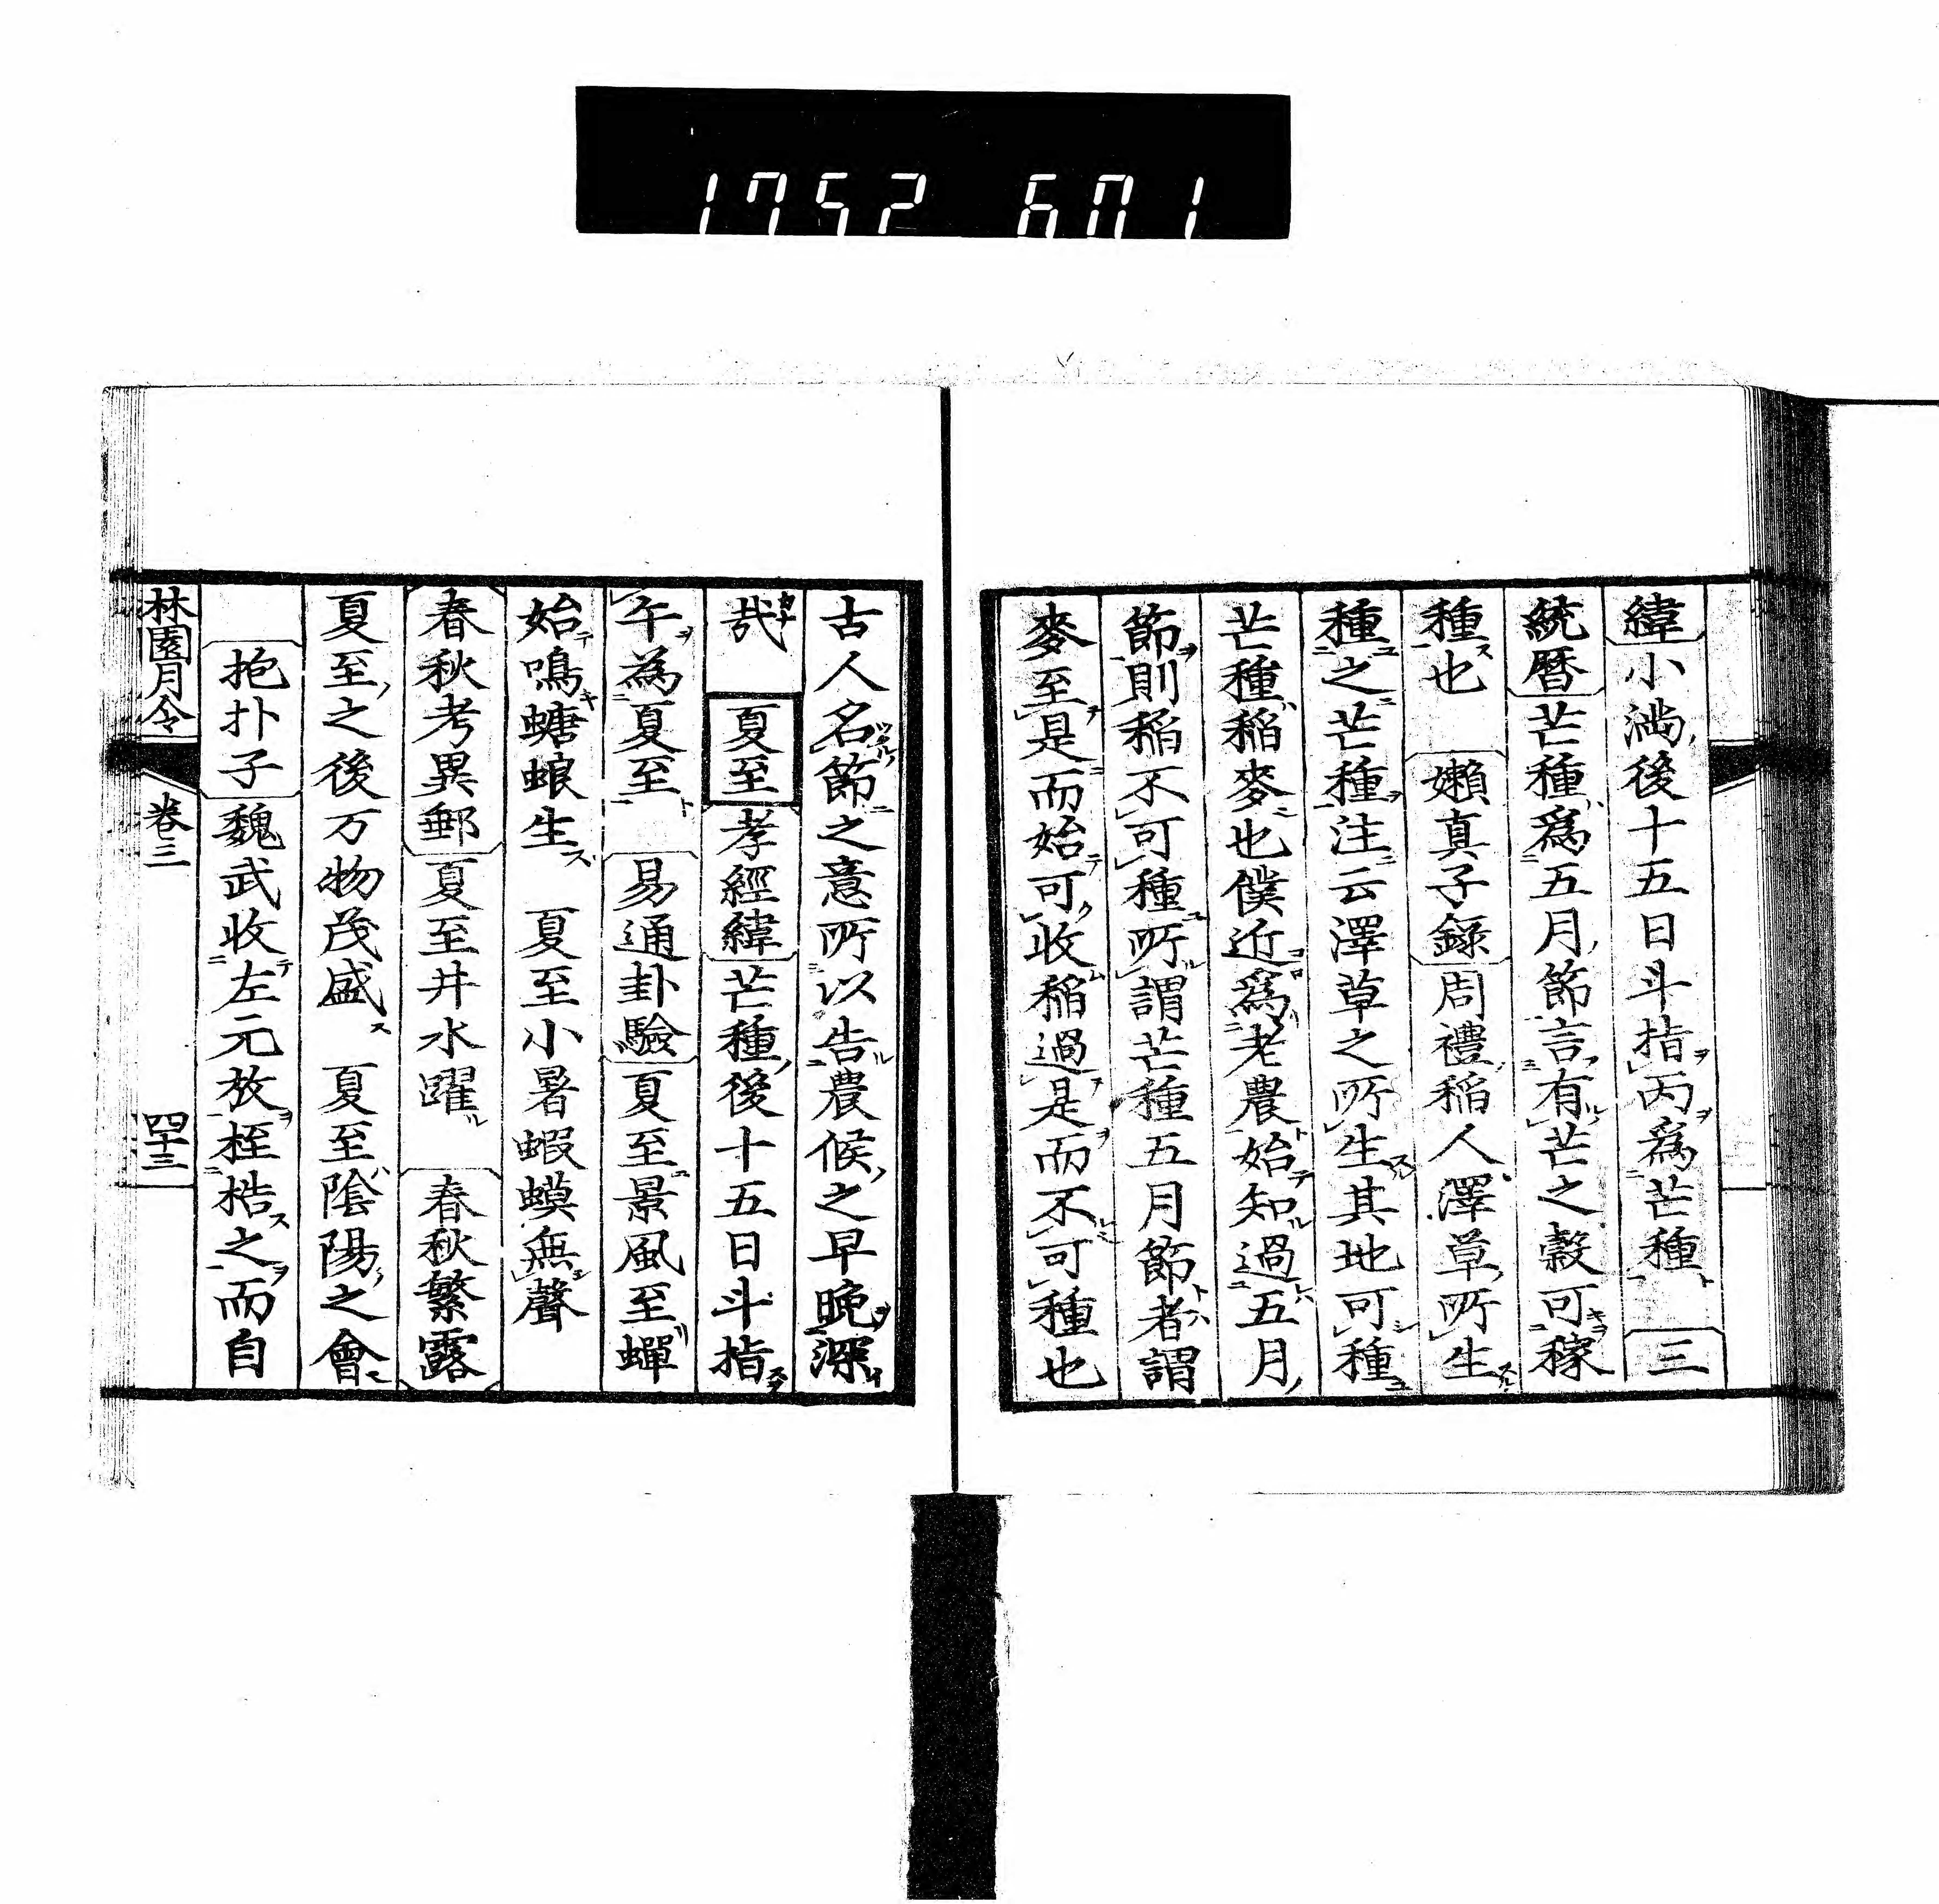 1752 601
緯小満後十五日斗指丙爲芒種 三
統暦芒種爲五月節言有芒之穀可稼
種也 嬾真子録周禮稲人澤草所生
種之芒種注云澤草之所生其地可種
芒種稲麥也僕近爲老農始知過五月
節則稲不可種所謂芒種五月節者謂
麥至是而始可收稲過是而不可種也
古人名節之意所以告農候之早晩深
哉 夏至 孝經緯芒種後十五日斗指
午為夏至 易通卦驗夏至景風至蟬
始鳴螗蜋生 夏至小暑蝦蟆無聲
春秋考異郵夏至井水躍 春秋繁露
夏至之後万物茂盛 夏至陰陽之會
抱朴子魏武收左元放桎梏之而自
林園月令
卷三
四十三